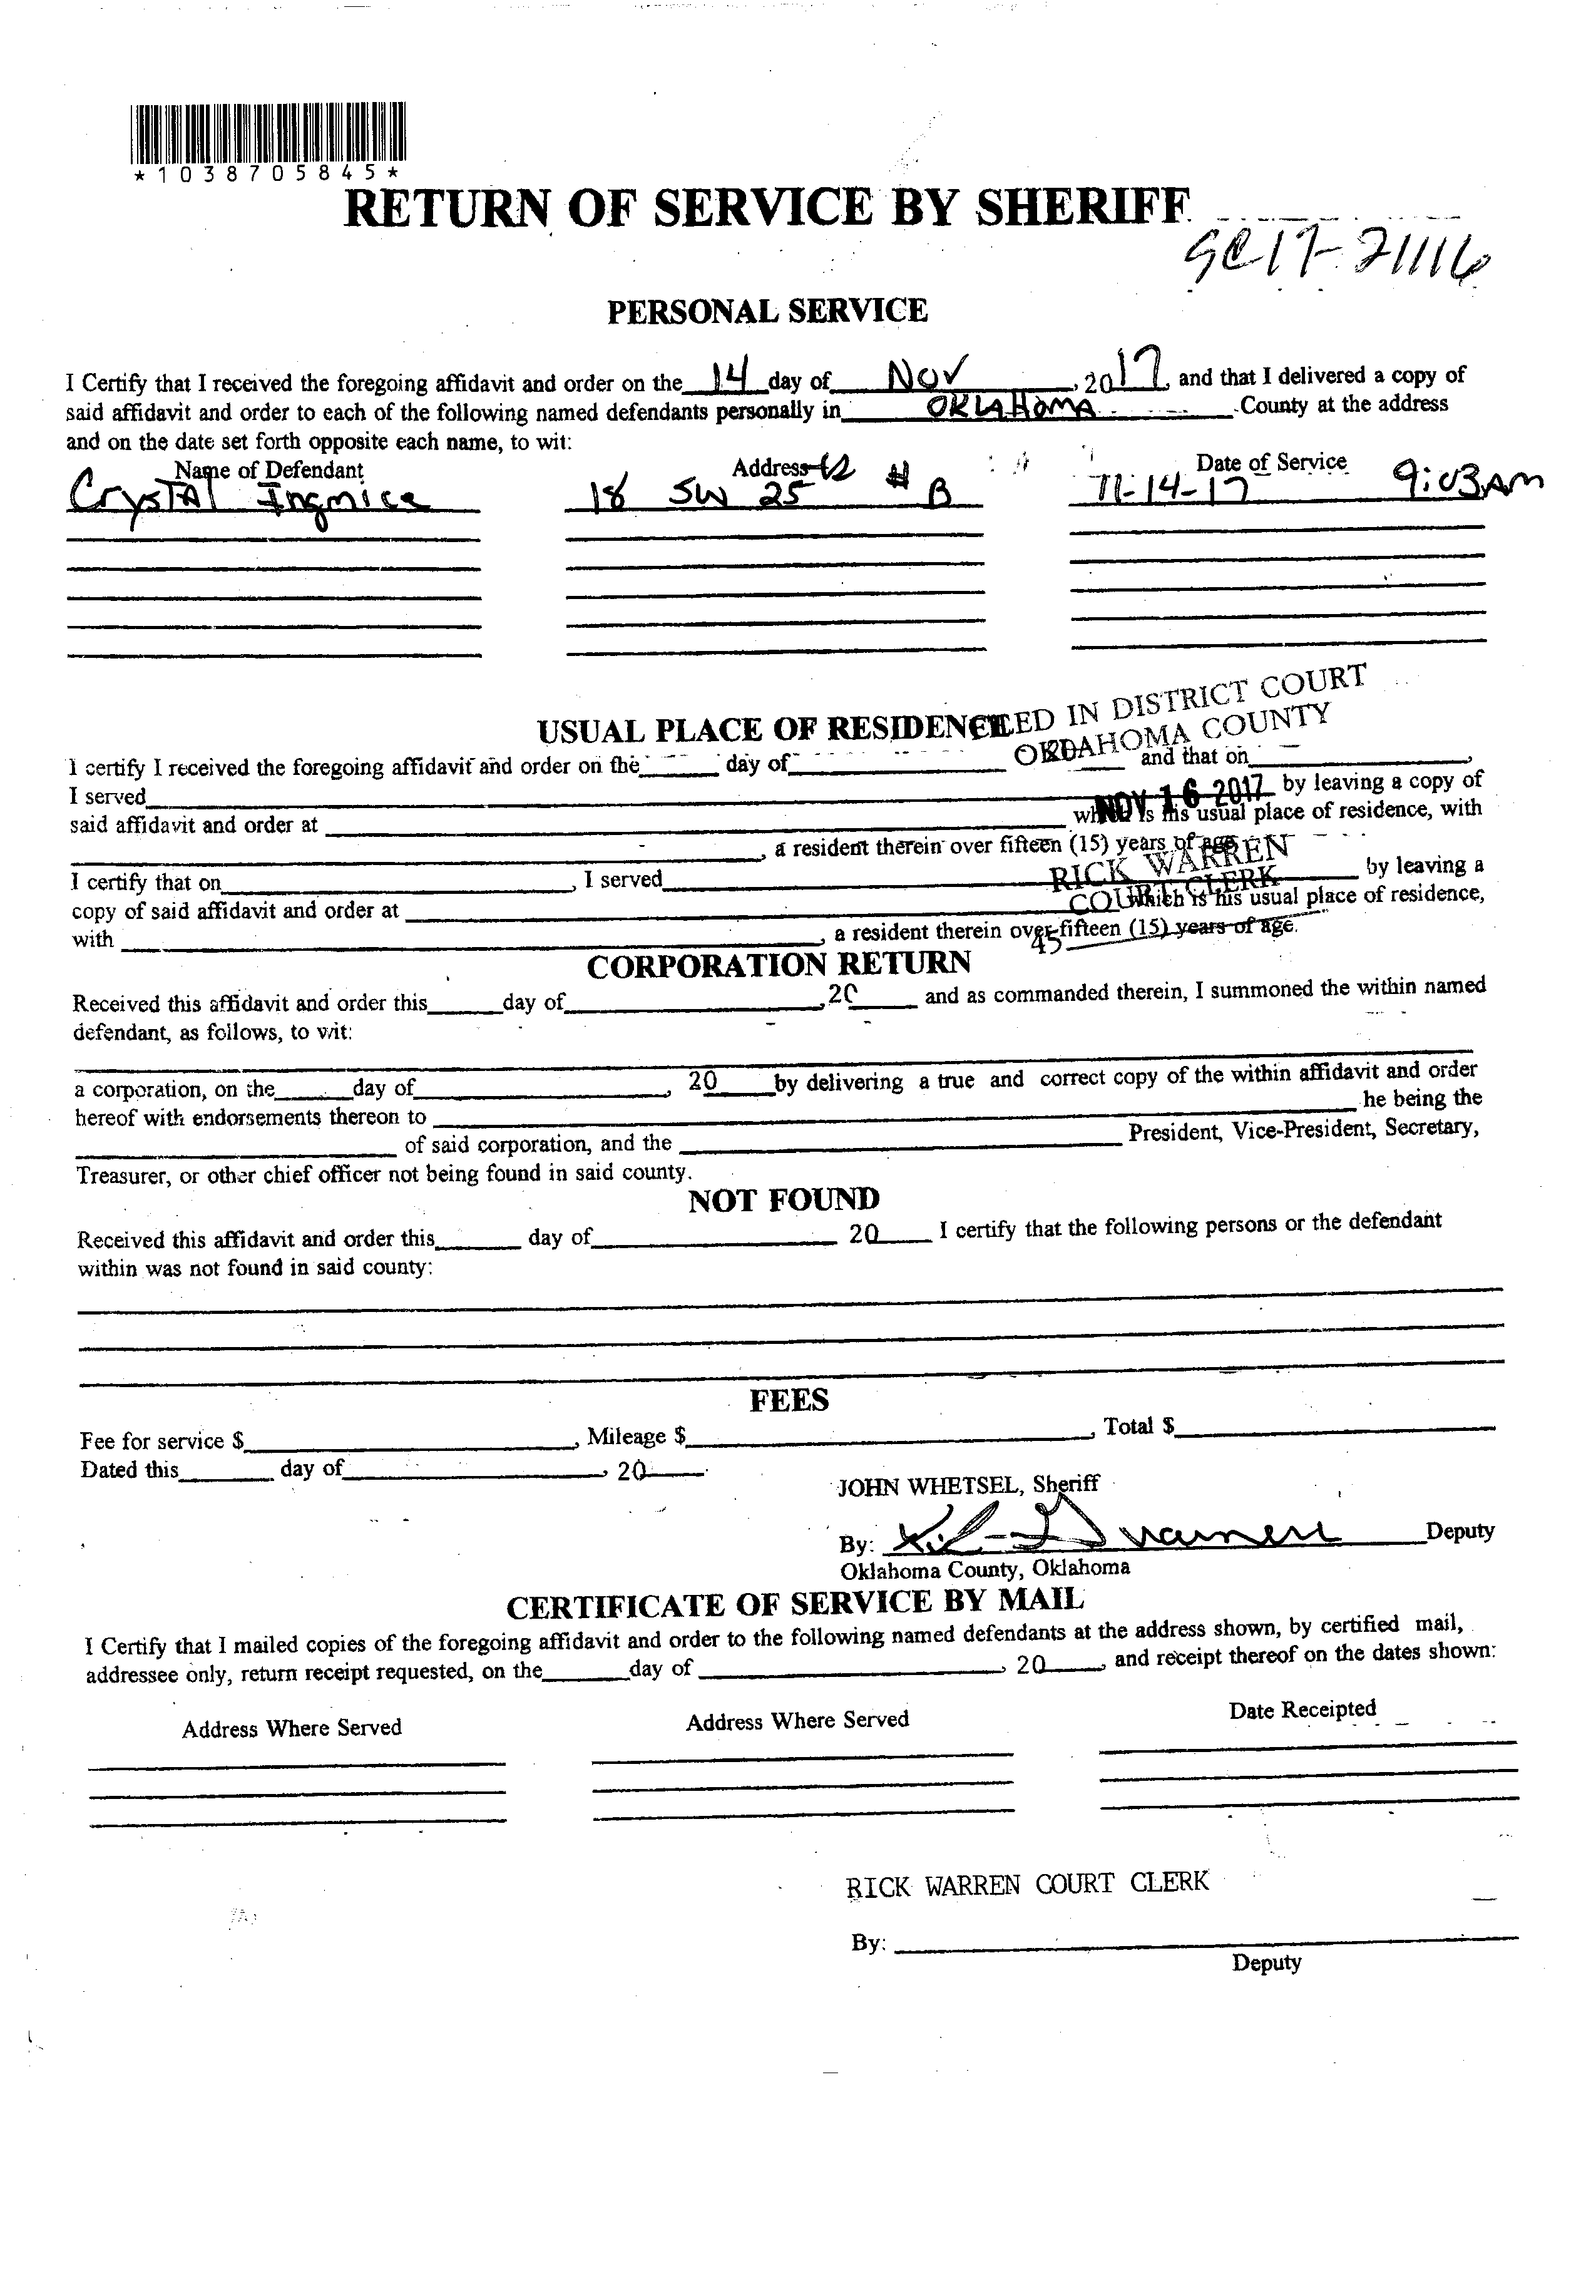 *1038705845*
RETURN OF SERVICE BY SHERIFF
SC17-21116
PERSONAL SERVICE
I Certify that I received the foregoing affidavit and order on the 14 day of Nov, 2017, and that I delivered a copy of
said affidavit and order to each of the following named defendants personally in OKLAHOMA County at the address
and on the date set forth opposite each name, to wit:
Name of Defendant Address Date of Service
Crystal Ingmice 18 SW 25 # B 11-14-17 9:03AM
FILED IN DISTRICT COURT
OKLAHOMA COUNTY
USUAL PLACE OF RESIDENCE
I certify I received the foregoing affidavit and order on the day of and that on,
NOV 16 2017
I served by leaving a copy of
said affidavit and order at which is his usual place of residence, with
, a resident therein over fifteen (15) years of age
RICK WARREN
COURT CLERK
I certify that on, I served by leaving a
copy of said affidavit and order at which is his usual place of residence,
with, a resident therein over fifteen (15) years of age.
45
CORPORATION RETURN
Received this affidavit and order this day of, 20 and as commanded therein, I summoned the within named
defendant, as follows, to wit:
a corporation, on the day of, 20 by delivering a true and correct copy of the within affidavit and order
hereof with endorsements thereon to he being the
of said corporation, and the President, Vice-President, Secretary,
Treasurer, or other chief officer not being found in said county.
NOT FOUND
Received this affidavit and order this day of 20 I certify that the following persons or the defendant
within was not found in said county:
FEES
Fee for service $, Mileage $, Total $
Dated this day of, 20.
JOHN WHETSEL, Sheriff
By: Deputy
Oklahoma County, Oklahoma
CERTIFICATE OF SERVICE BY MAIL
I Certify that I mailed copies of the foregoing affidavit and order to the following named defendants at the address shown, by certified mail,
addressee only, return receipt requested, on the day of, 20, and receipt thereof on the dates shown:
Address Where Served Address Where Served Date Receipted
RICK WARREN COURT CLERK
By:
Deputy